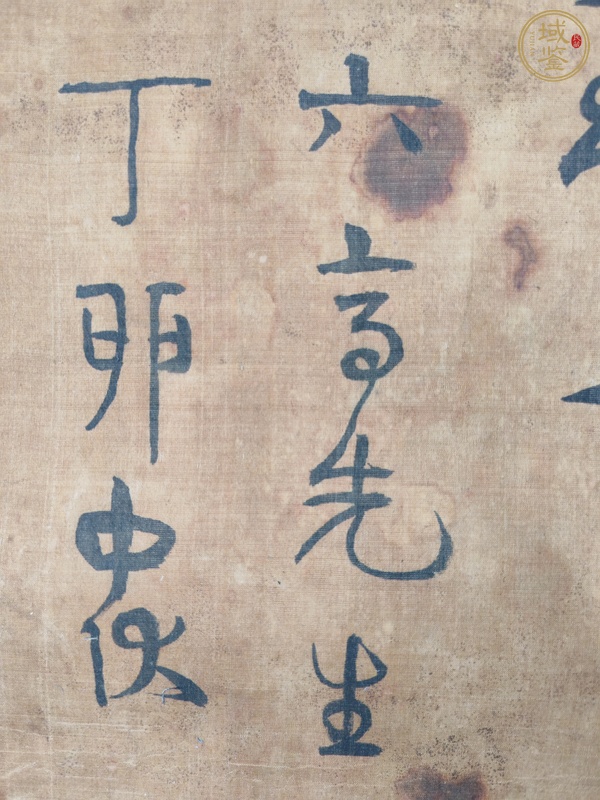 六先生
丁卯中伏
域鉴